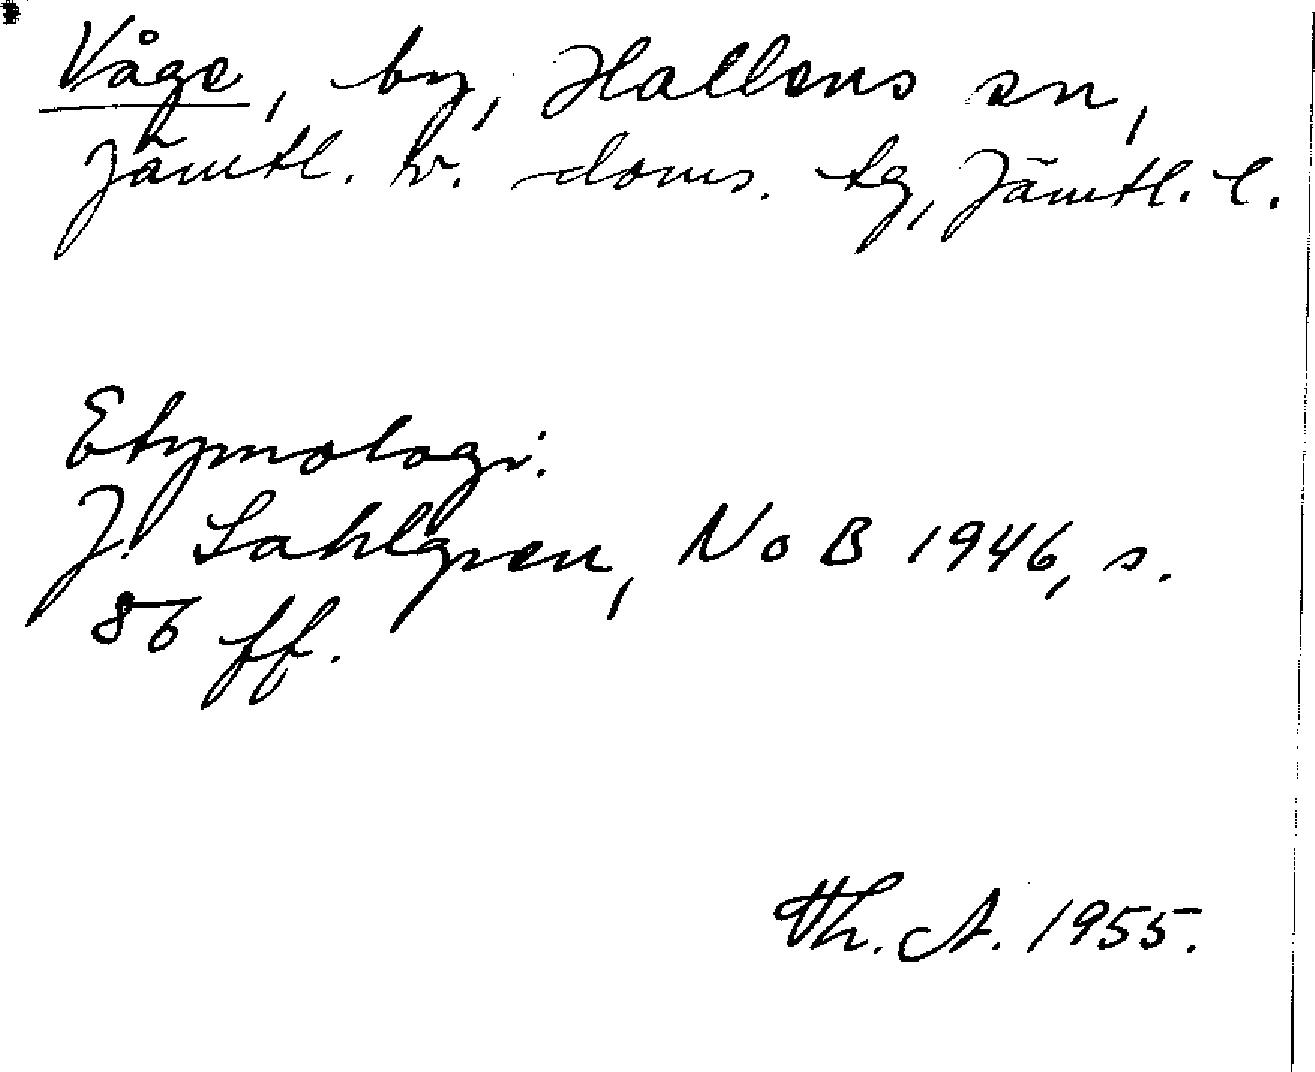 Våge, by, Hallens sn,
Jämtl. v. doms. tg, Jämtl. l.
Etymologi.
J. Sahlgren, NoB 1946, s.
86 ff.
Th. A. 1955.